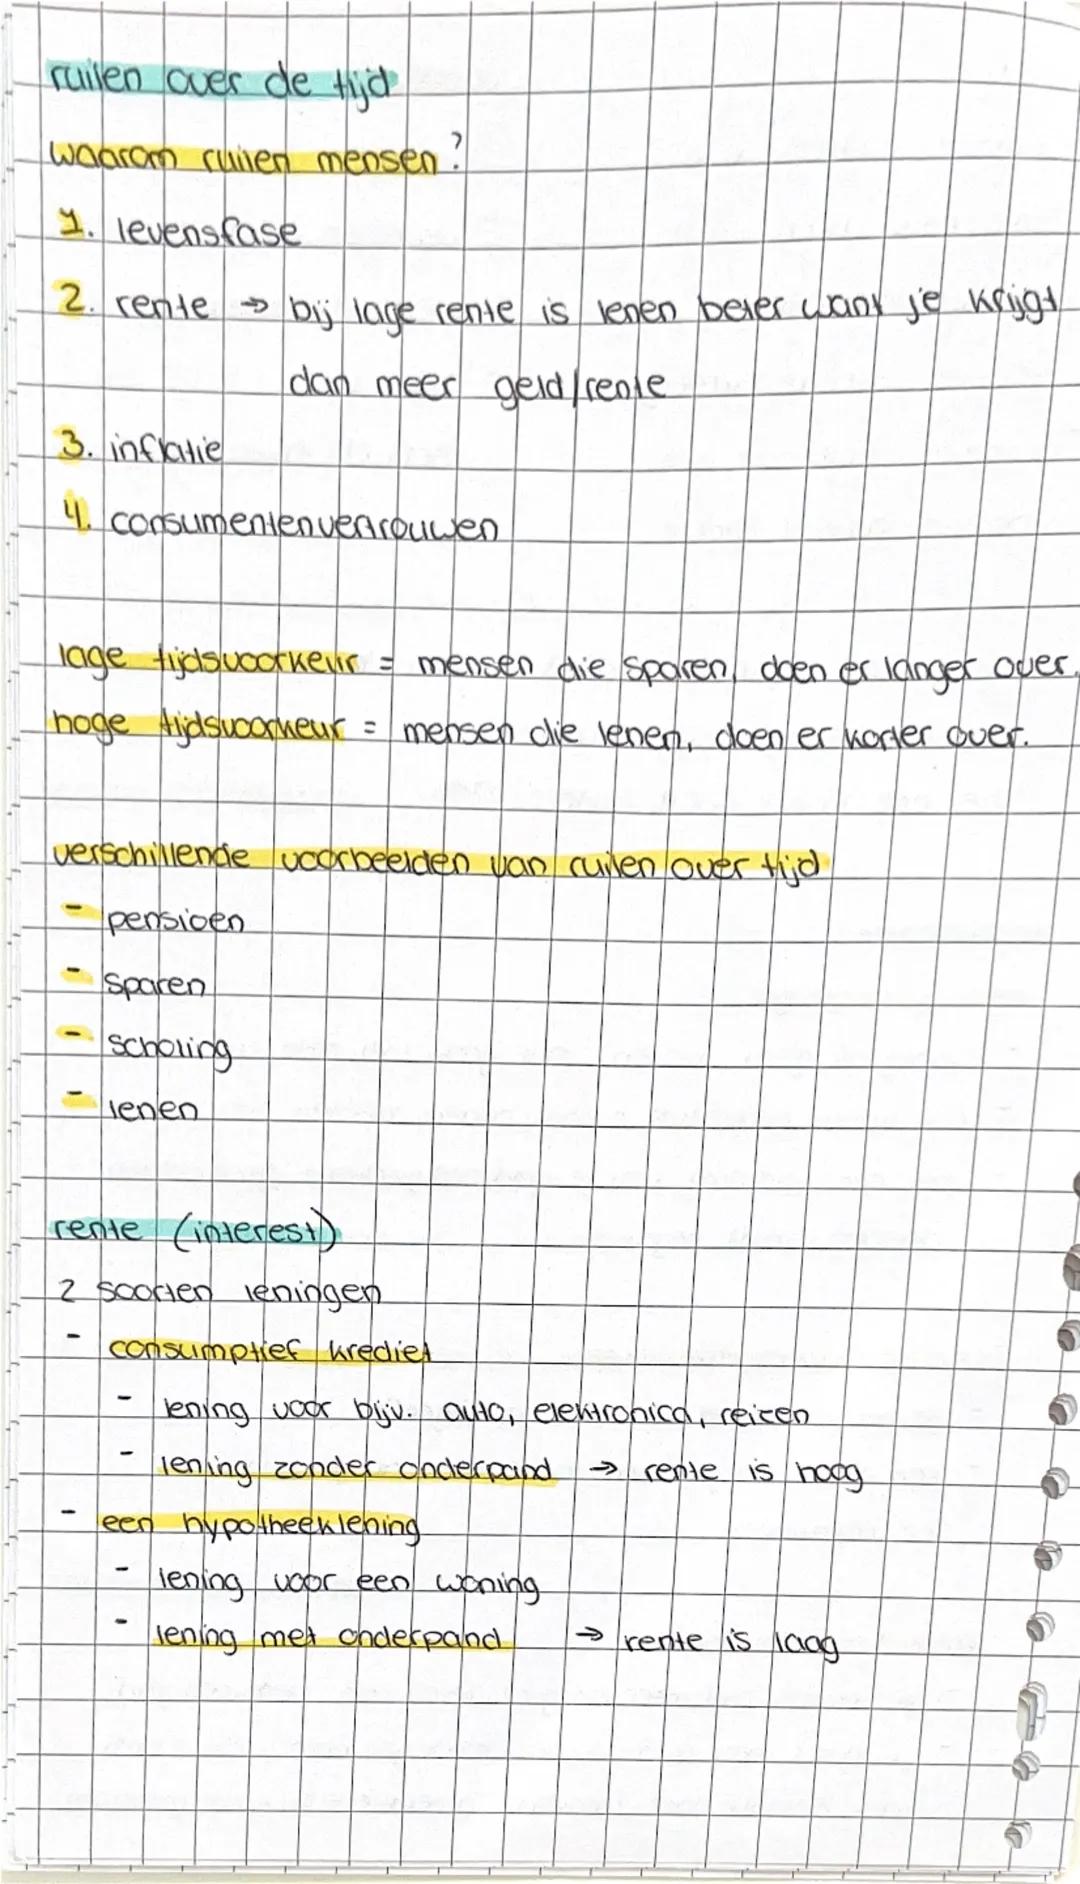 ruilen over de tijd
waarom ruilen mensen?
1. levensfase
2. rente → bij lage rente is lenen beter want je krijgt
dan meer geld/rente
3. inflatie
4. consumentenvertrouwen
lage tijdsvoorkeur = mensen die sparen, doen er langer over.
hoge tijdsvoorkeur = mensen die lenen, doen er korter over.
verschillende voorbeelden van ruilen over tijd
- pensioen
- sparen
- scholing
- lenen
rente (interest)
2 soorten leningen
- consumptief krediet
- lening voor bijv. auto, elektronica, reizen
- lening zonder onderpand → rente is hoog
- een hypotheeklening
- lening voor een woning
- lening met onderpand → rente is laag